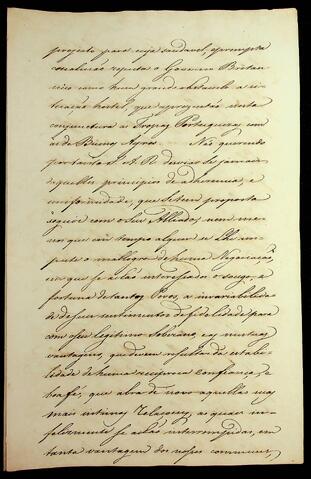 projecto para cuja saudavel, e prompta
conclusão reputa o Governo Britan-
nico como hum grande obstaculo a si-
tuação hostil, que aprezentão nesta
conjunctura as Tropas Portuguezas com
as de Buenos Ayres. Não querendo
portanto S. A. R. desviar-se jamais
daquelles principios de adherencia, e
conformidade, que se tem proposto
seguir com os seus Alliados, nem me-
nos que em tempo algum se Lhe im-
pute o mallogro de huma Negociação,
em que se achão interessados o socego, e
fortuna de tantos Povos, a invariabilida-
de de seus sentimentos de fidelidade para
com seu legitimo Soberano, e as mutuas
vantagens, que devem resultar da estabe-
lidade de huma reciproca confiança, e
boa fé, que abra de novo aquellas
mais intimas Relaçoens, as quaes in-
felizmente se achão interrompidas, em
tanta vantagem dos nossos communs,